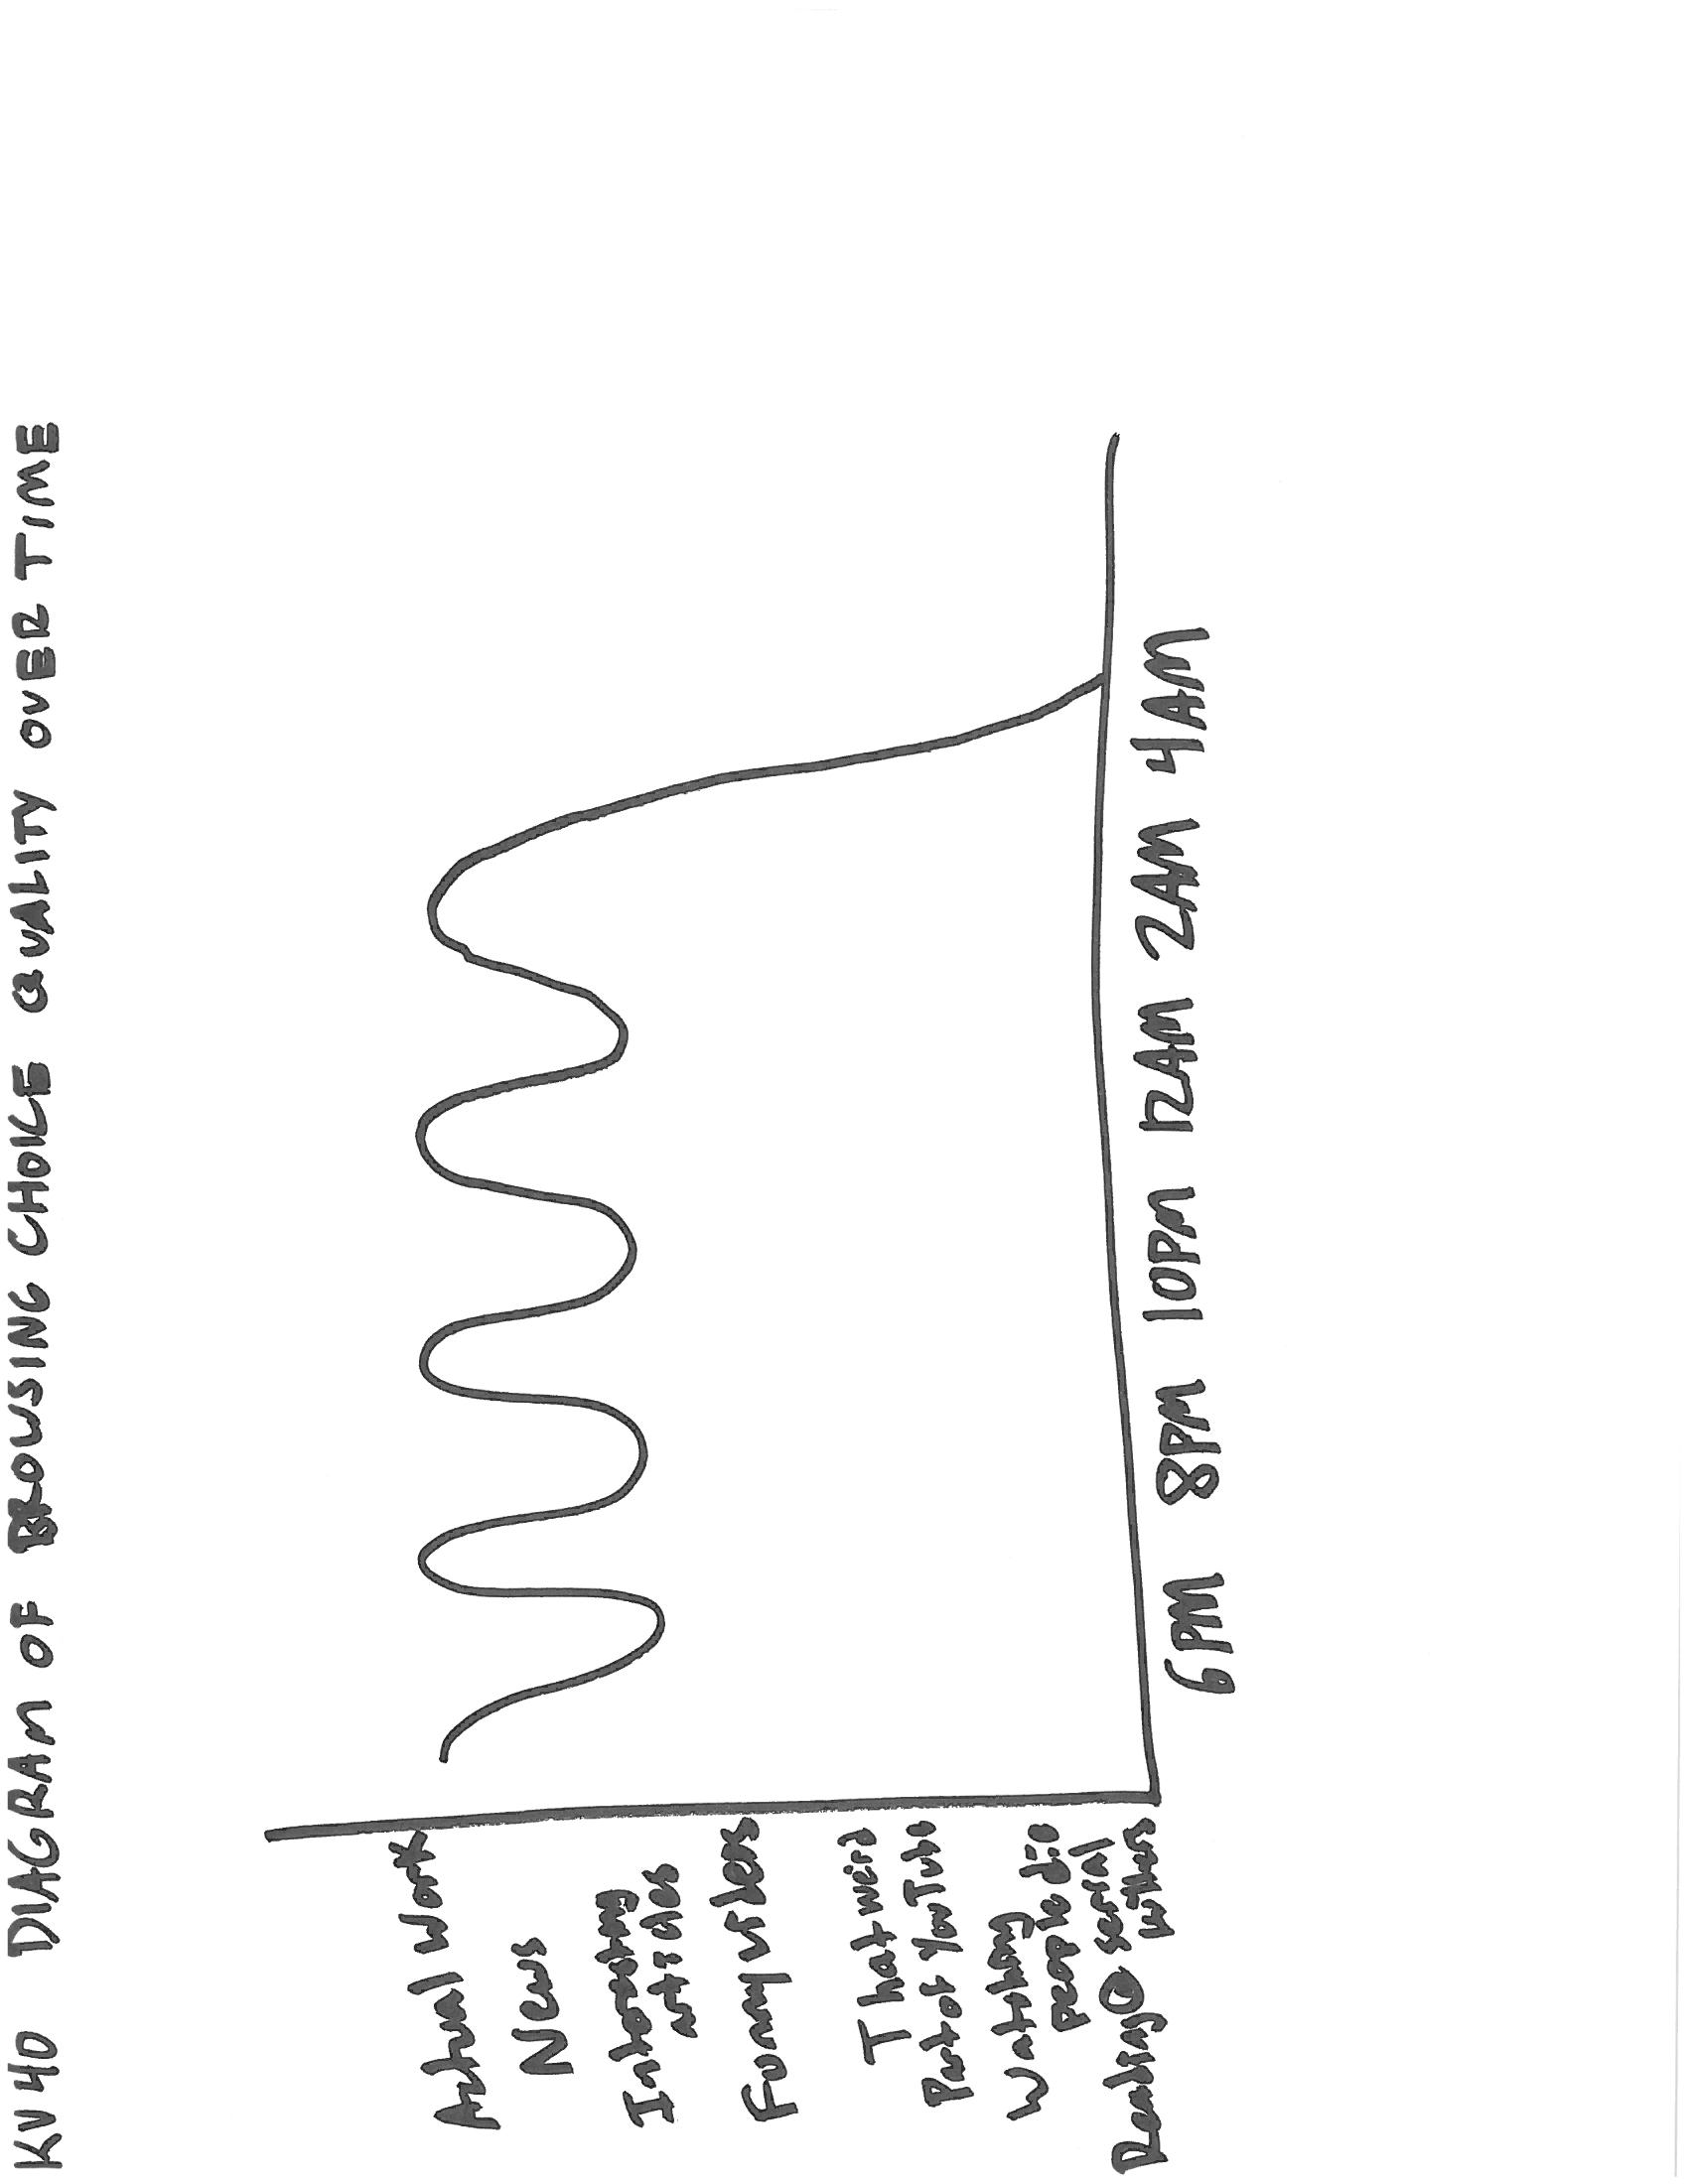 KV40 DIAGRAM OF BROWSING CHOICE QUALITY OVER TIME
Actual Work
News
Interesting
articles
Funny videos
That weird
Part of YouTube
Watching
people die
Reading @ serial
killers
6PM 8PM 10PM 12AM 2AM 4AM